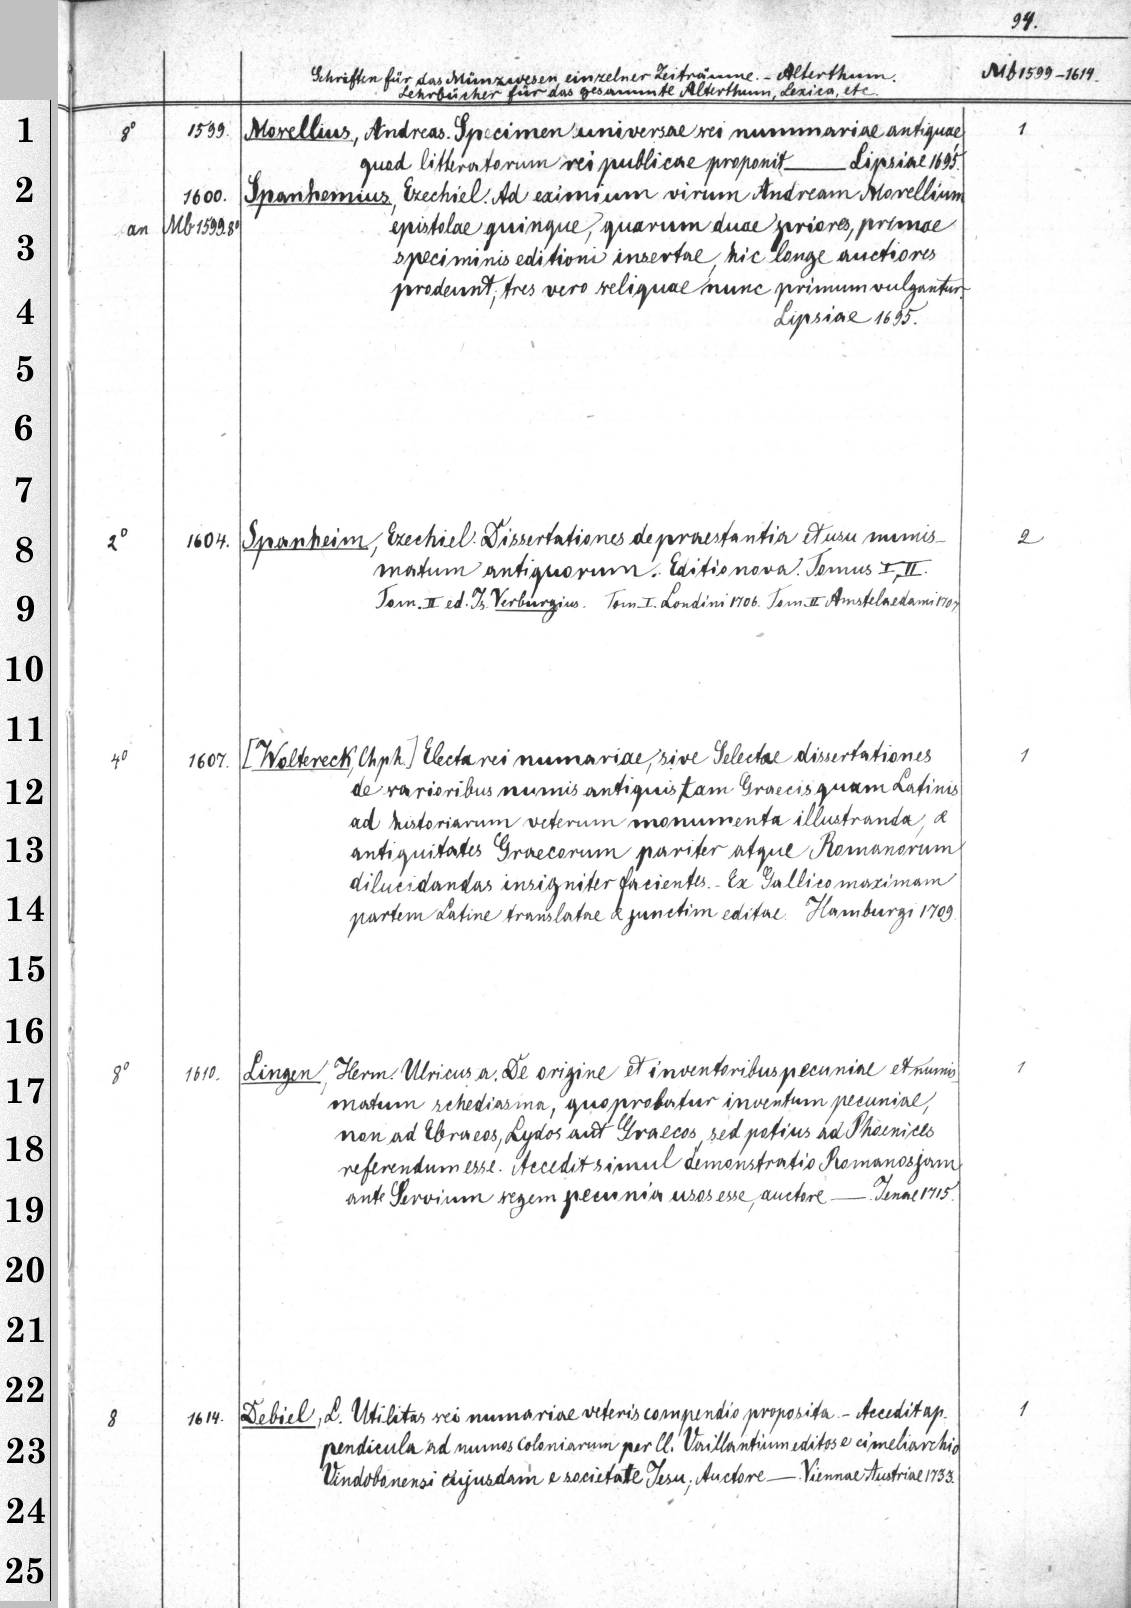 94.
Schriften für das Münzwesen einzelner Zeiträume. - Alterthum. Mb 1599-1614.
Lehrbücher für das gesammte Alterthum, Lexica, etc.
1 8° 1599. Morellius, Andreas. Specimen universae rei nummariae antiquae, 1
quod litteratorum rei publicae proponit ——— Lipsiae 1695.
2 1600. Spanhemius, Ezechiel. Ad eximium virum Andream Morellium
an Mb 1599.8° epistolae quinque, quarum duae priores, primae
3 speciminis editioni insertae, hic longe auctiores
prodeunt, tres vero reliquae nunc primum vulgantur.
4 Lipsiae 1695.
5
6
7
8 2° 1604. Spanheim, Ezechiel. Dissertationes de praestantia et usu numis- 2
matum antiquorum. Editio nova. Tomus I, II.
9 Tom. II ed. Is. Verburgius. Tom. I. Londini 1706. Tom. II Amstelaedami 1707
10
11
4° 1607. [Woltereck, Chph.] Electa rei numariae, sive Selectae dissertationes 1
12 de rarioribus numis antiquis tam Graecis quam Latinis
ad historiarum veterum monumenta illustranda, &
13 antiquitates Graecorum pariter atque Romanorum
dilucidandas insigniter facientes. - Ex Gallico maximam
14 partem Latine translatae & junctim editae. Hamburgi 1709.
15
16
8° 1610. Lingen, Herm. Ulricus a. De origine et inventoribus pecuniae et numis 1
17 matum schediasma, quo probatur inventum pecuniae,
non ad Ebraeos, Lydos aut Graecos, sed potius ad Phoenices
18 referendum esse. Accedit simul demonstratio Romanos jam
19 ante Servium regem pecunia usos esse, auctore —— Jenae 1715.
20
21
22
8 1614. Debiel, L. Utilitas rei numariae veteris compendio proposita. - Accedit ap- 1
23 pendicula ad numos coloniarum per Cl. Vaillantium editos e cimeliarchio
Vindobonensi cujusdam e societate Jesu; Auctore —— Viennae Austriae 1733.
24
25